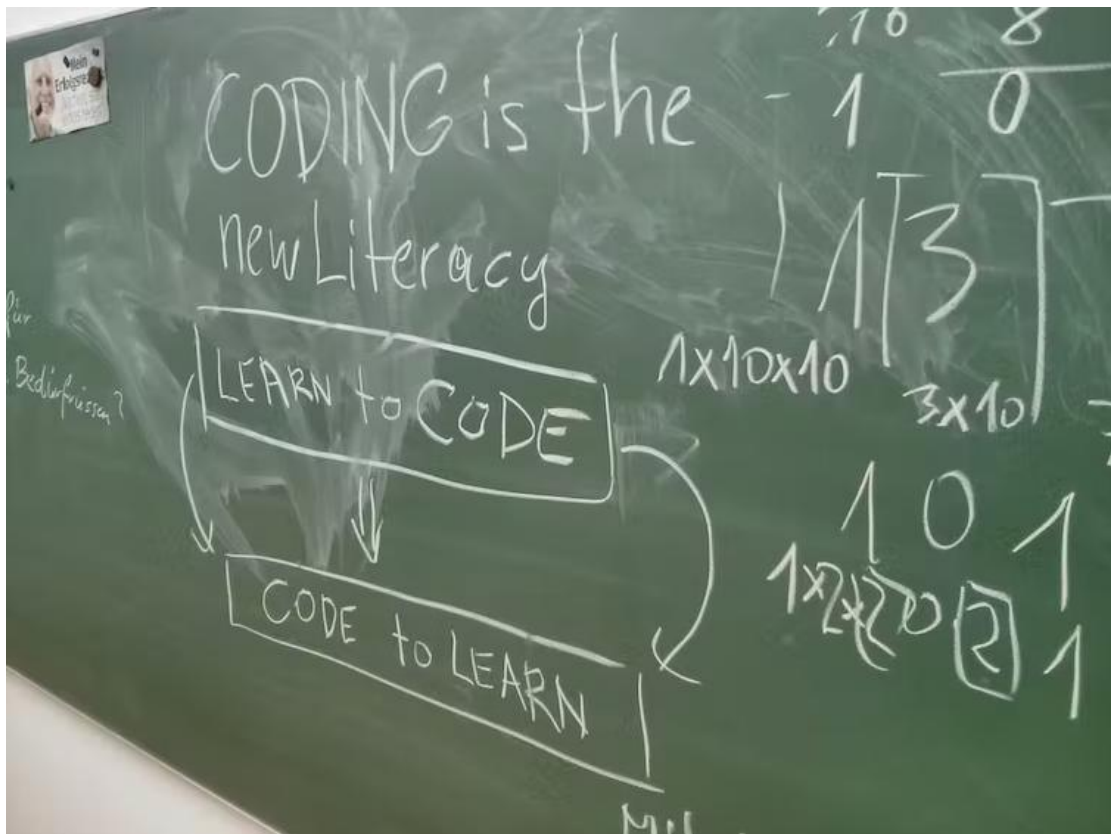 Mein
CODING is the
new Literacy
LEARN to CODE
CODE to LEARN
für
Bedürfnissen?
8
- 1 0
1 3
1x10x10
3x10
1 0 1
1x2x2 0 2 1